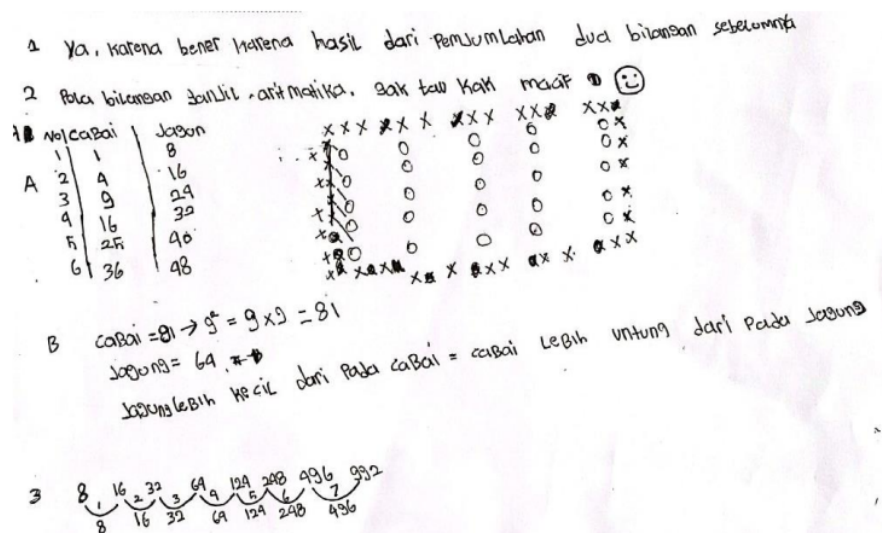 1 Ya, karena bener karena hasil dari Pemjumlahan dua bilangan sebelumnya
2 Pola bilangan ganjil, aritmatika. gak tau kak maaf
No Cabai Jagung
1 1 8
A 2 4 16
3 9 24
4 16 32
5 25 40
6 36 48
x x x x x x x x x x x x x x x
x o o o o o x
o o o o o x
x o o o o o x
x o o o o o x
x o o o o o x
x x x x x x x x x x x x x x x
B Cabai = 81 → 9² = 9 x 9 = 81
Jagung = 64
Jagung lebih kecil dari Pada Cabai = Cabai Lebih Untung dari Pada Jagung
3 8 16 32 64 124 248 496 992
1 2 3 4 5 6 7
8 16 32 64 124 248 496